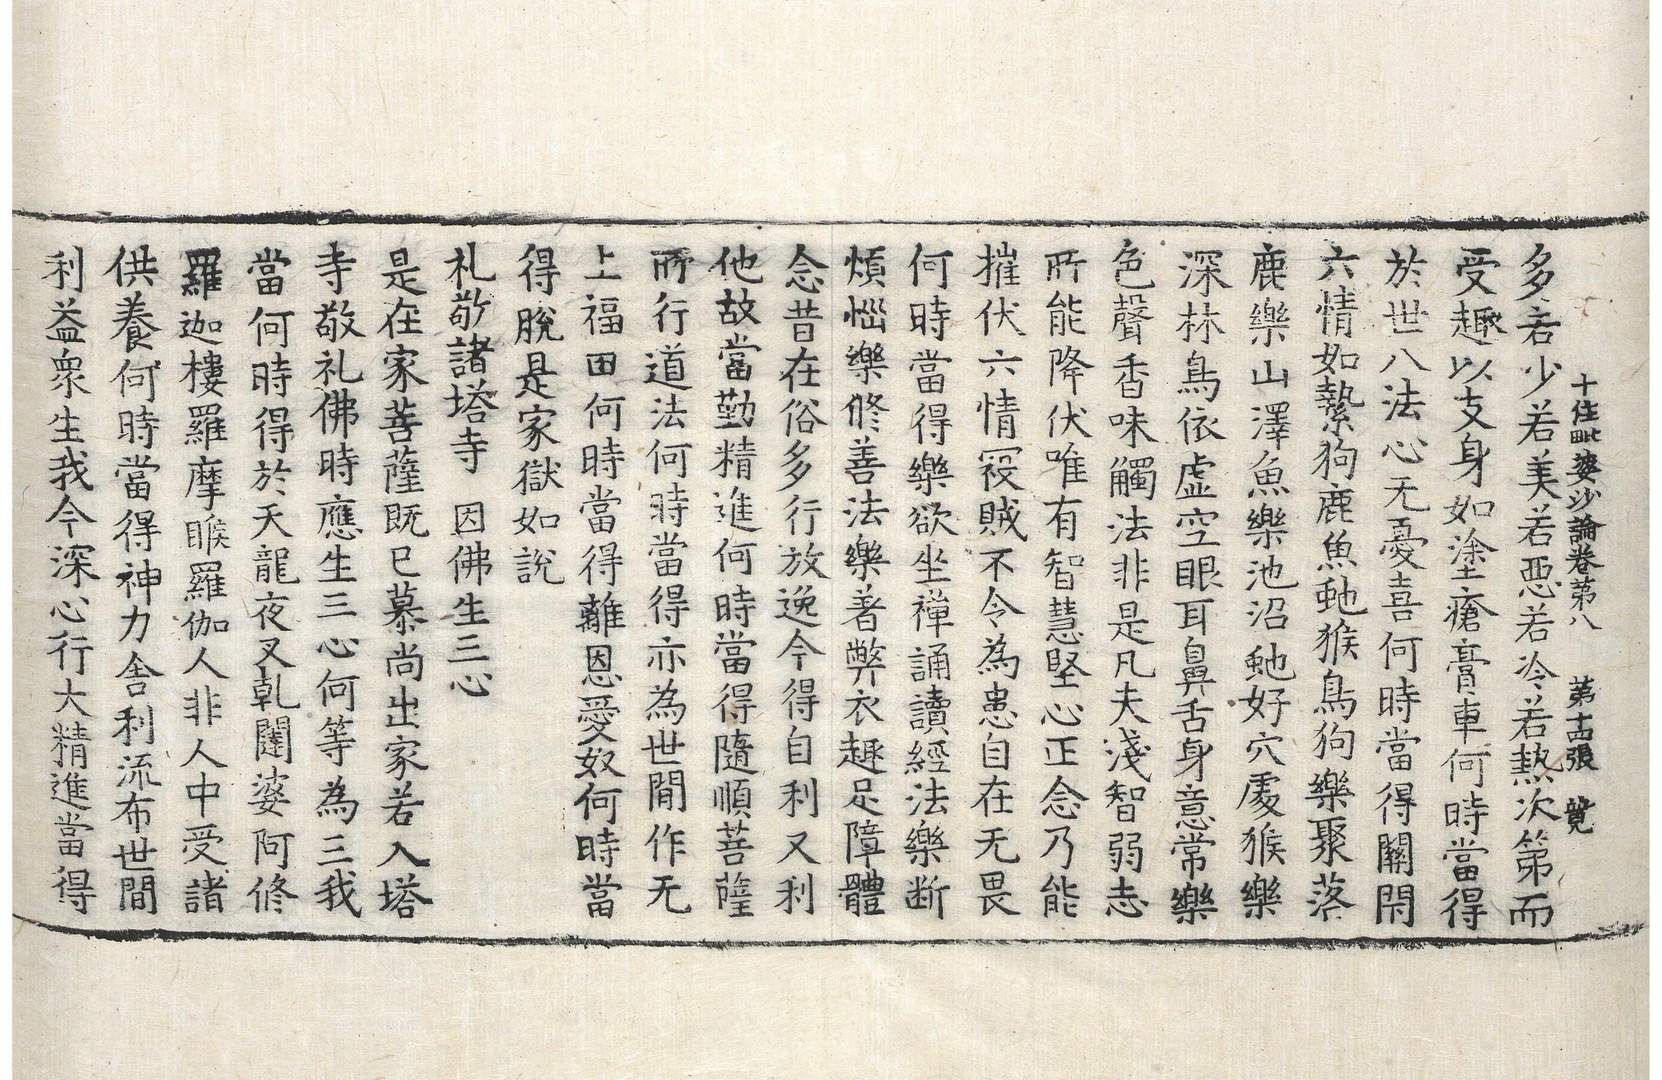 十住毗婆沙論卷第八　第十四張　竟
多若少若美若惡若冷若熱次第而
受趣以支身如塗瘡膏車何時當得
於世八法心无憂喜何時當得關閇
六情如縶狗鹿魚虵猴鳥狗樂聚落
鹿樂山澤魚樂池沼虵好穴處猴樂
深林鳥依虛空眼耳鼻舌身意常樂
色聲香味觸法非是凡夫淺智弱志
所能降伏唯有智慧堅心正念乃能
摧伏六情㓂賊不令為患自在无畏
何時當得樂欲坐禪誦讀經法樂断
煩惱樂修善法樂著弊衣趣足障體
念昔在俗多行放逸今得自利又利
他故當勤精進何時當得隨順菩薩
所行道法何時當得亦為世間作无
上福田何時當得離恩愛奴何時當
得脫是家獄如說
礼敬諸塔寺　因佛生三心
是在家菩薩既已慕尚出家若入塔
寺敬礼佛時應生三心何等為三我
當何時得於天龍夜叉乹闥婆阿修
羅迦樓羅摩睺羅伽人非人中受諸
供養何時當得神力舍利流布世間
利益衆生我今深心行大精進當得